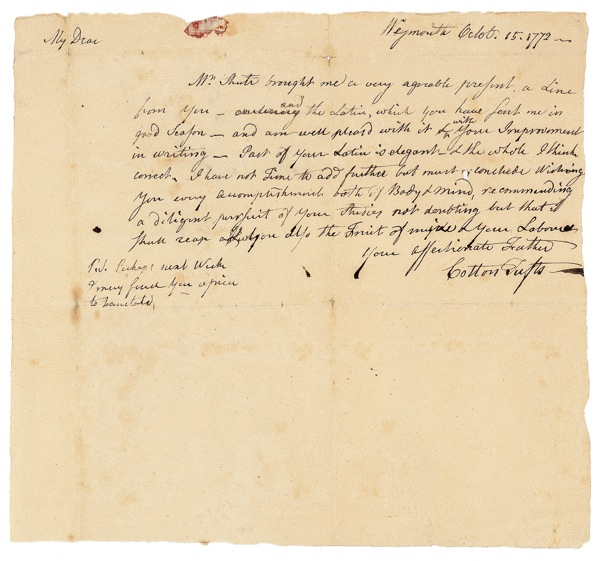 Weymouth Octob. 15. 1772
My Dear
Mr. Shute brought me a very agreable present, a Line
from you — and the Latin, which you have sent me in
good Season — and am well pleasd with it & with your Improvement
in writing — Part of your Latin is elegant & the whole I think
correct. I have not Time to add further but must conclude Wishing
You every accomplishment both of Body & Mind, recommending
a diligent pursuit of your Studies not doubting but that I
shall reap & you also the Fruit of mine & your Labours
Your affectionate Father
Cotton Tufts
P.S. Perhaps next Week
I may send you a piece
to translate